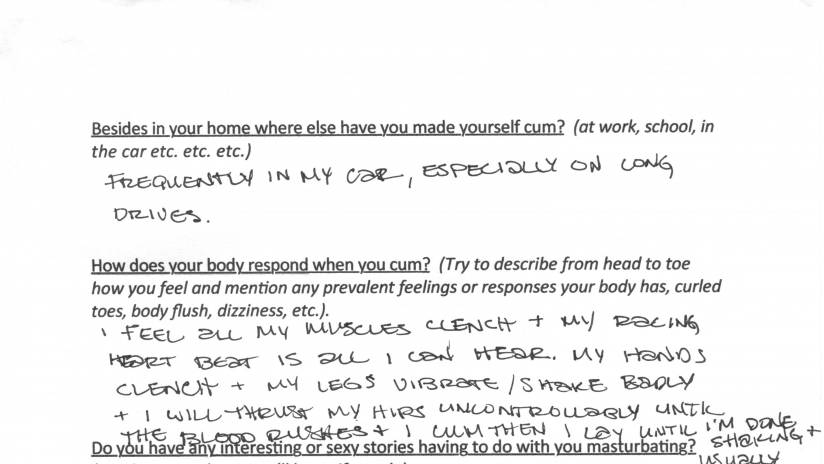 Besides in your home where else have you made yourself cum? (at work, school, in
the car etc. etc. etc.)
FREQUENTLY IN MY CAR, ESPECIALLY ON LONG
DRIVES.
How does your body respond when you cum? (Try to describe from head to toe
how you feel and mention any prevalent feelings or responses your body has, curled
toes, body flush, dizziness, etc.).
I FEEL ALL MY MUSCLES CLENCH + MY RACING
HEART BEAT IS ALL I CAN HEAR. MY HANDS
CLENCH + MY LEGS VIBRATE/SHAKE BADLY
+ I WILL THRUST MY HIPS UNCONTROLLABLY UNTIL
THE BLOOD RUSHES + I CUM THEN I LAY UNTIL I'M DONE
SHAKING +
Do you have any interesting or sexy stories having to do with you masturbating?
USUALLY